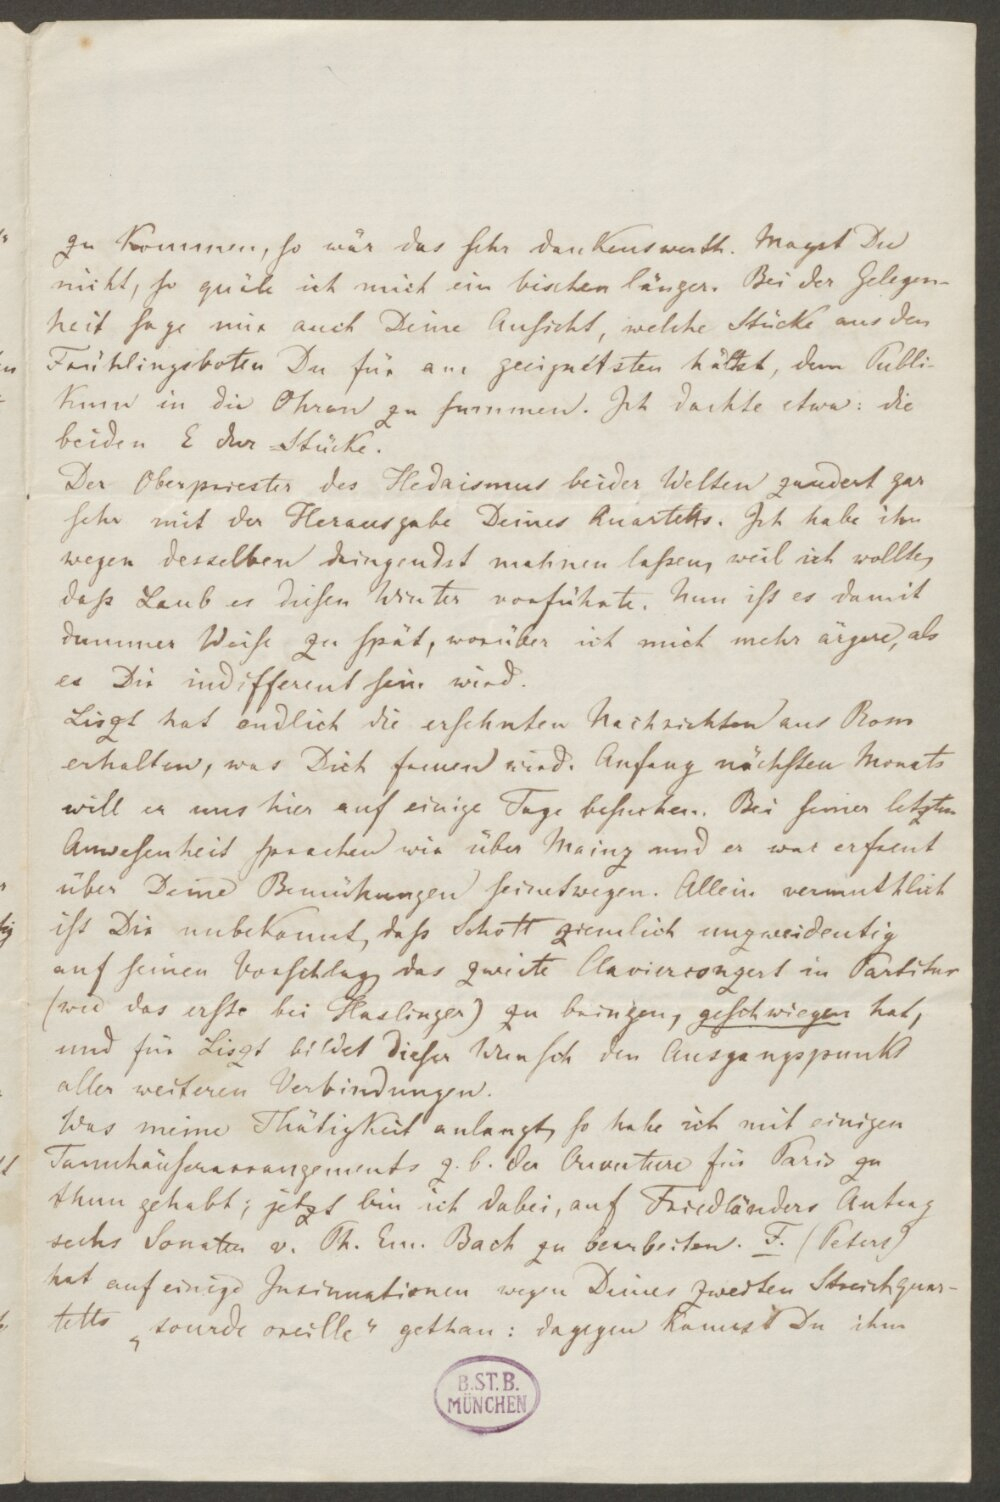 zu kommen, so wär das sehr dankenswerth. Magst Du
nicht, so quäle ich mich ein bischen länger. Bei der Gelegen-
heit sage mir auch Deine Ansicht, welche Stücke aus den
Frühlingsboten Du für am geeignetsten hältst, dem Publi-
kum in die Ohren zu summen. Ich dachte etwa: die
beiden E dur Stücke.
Der Oberpriester des Hedaismus beider Welten zaudert gar
sehr mit der Herausgabe Deines Quartetts. Ich habe ihn
wegen desselben dringendst mahnen lassen, weil ich wollte,
daß Laub es diesen Winter vorführte. Nun ist es damit
dummer Weise zu spät, worüber ich mich mehr ärgere, als
es Dir indifferent sein wird.
Liszt hat endlich die ersehnten Nachrichten aus Rom
erhalten, was Dich freuen wird. Anfang nächsten Monats
will er uns hier auf einige Tage besuchen. Bei seiner letzten
Anwesenheit sprachen wir über Mainz und er war erfreut
über Deine Bemühungen seinetwegen. Allein vermuthlich
ist Dir unbekannt, daß Schott ziemlich unzweideutig
auf seinen Vorschlag, das zweite Clavierconzert in Partitur
(wie das erste bei Haslinger) zu bringen, geschwiegen hat,
und für Liszt bildet dieser Wunsch den Ausgangspunkt
aller weiteren Verbindungen.
Was meine Thätigkeit anlangt, so habe ich mit einigen
Tannhäuserarrangements z. b. der Ouverture für Paris zu
thun gehabt; jetzt bin ich dabei, auf Friedländers Antrag
sechs Sonaten v. Ph. Em. Bach zu bearbeiten. F. (Peters)
hat auf einige Insinuationen wegen Deines zweiten Streichquar-
tetts „sourde oreille“ gethan: dagegen kannst Du ihm
B.ST.B.
MÜNCHEN